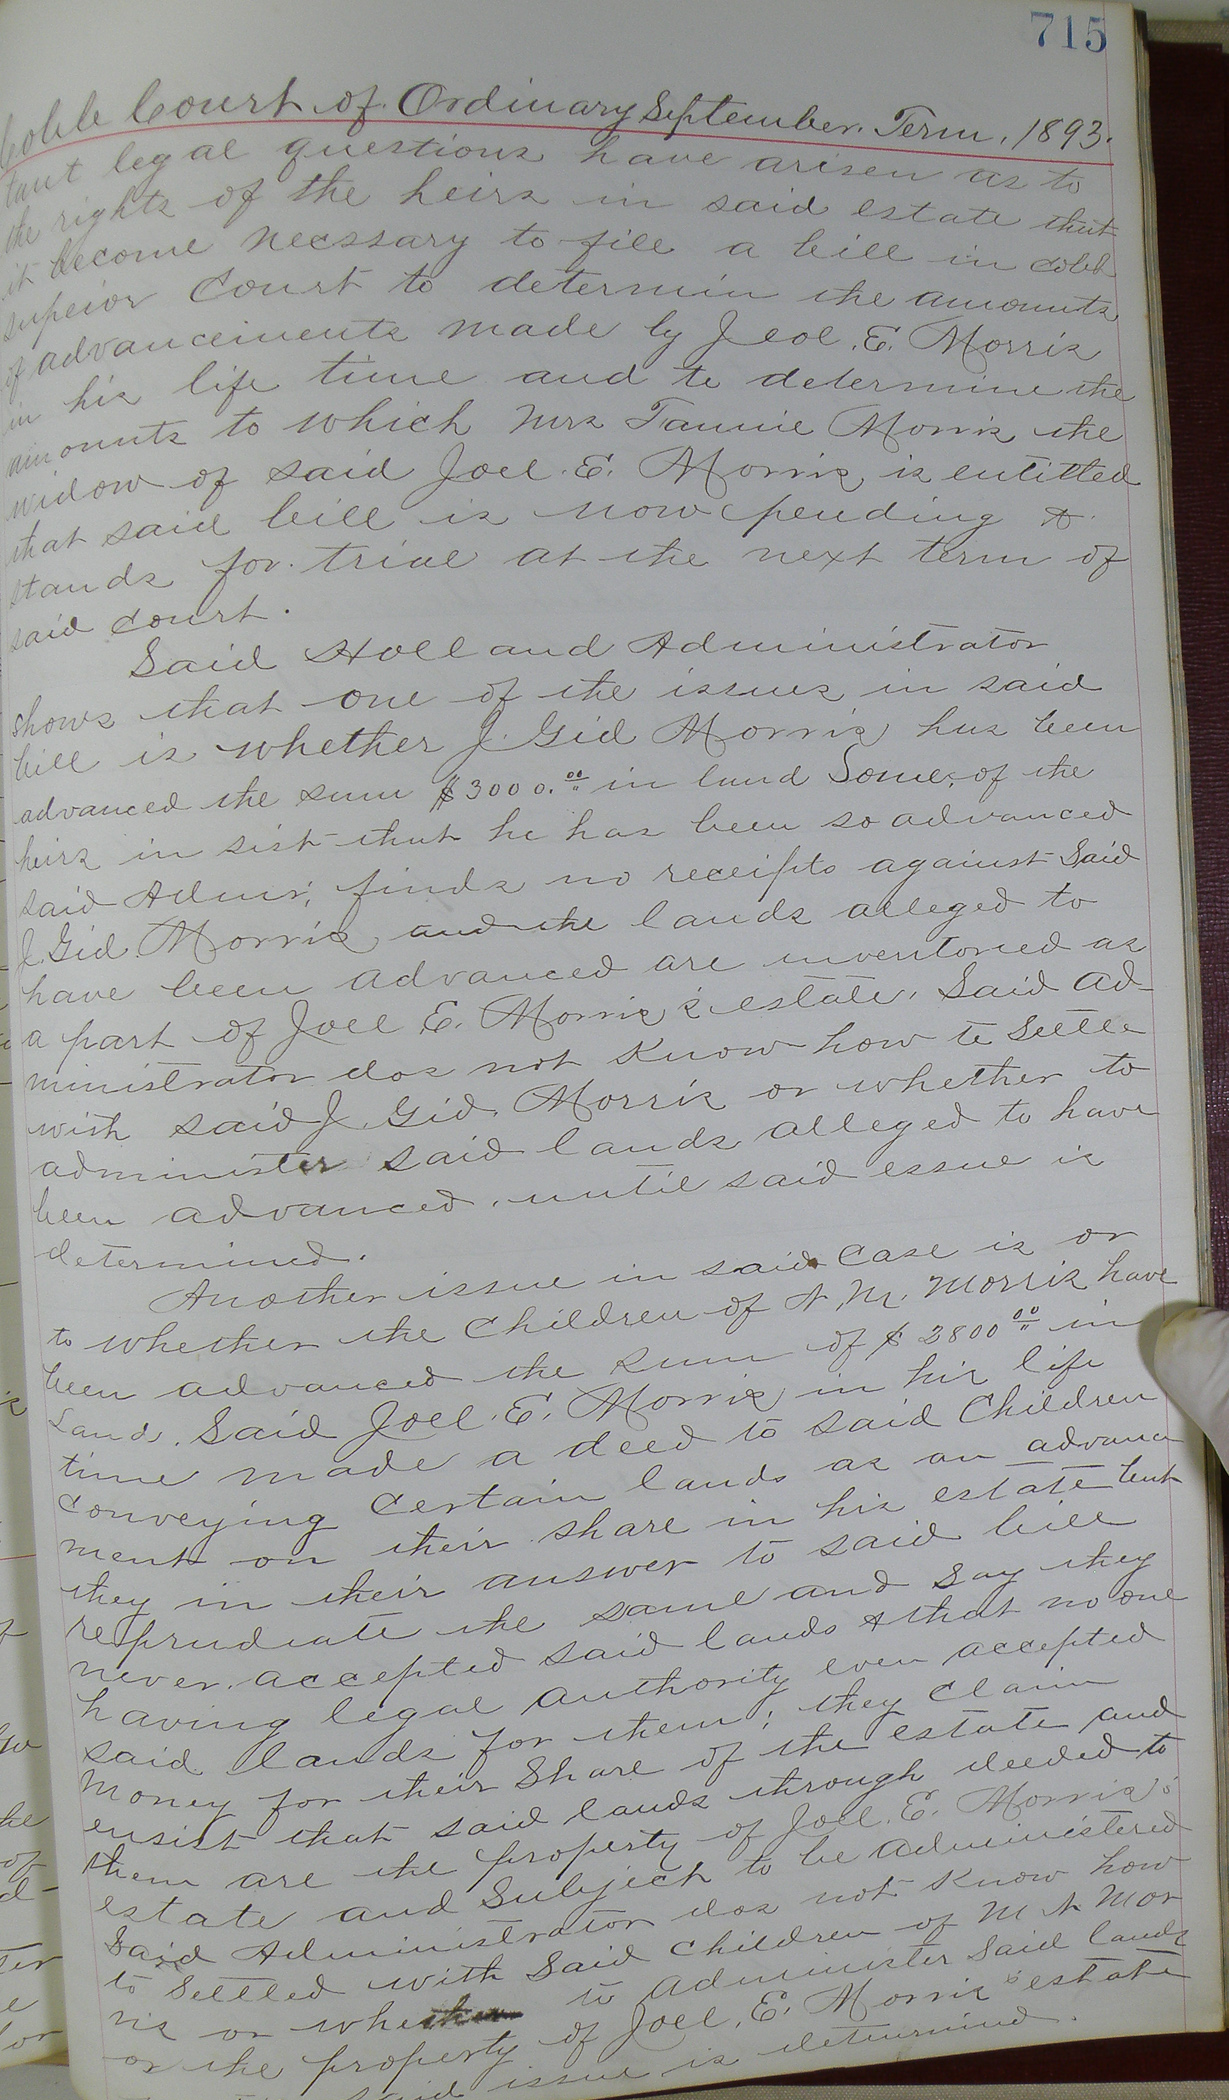 715
Cobb Court of Ordinary September Term, 1893.
tant legal questions have arisen as to
the rights of the heirs in said estate that
it become necssary to file a bill in Cobb
supeior Court to determin the amounts
of advancements made by Jeol. E. Morris
in his life time and to determine the
amounts to which Mrs Fannie Morris the
widow of said Joel. E. Morris is entitted
that said bill is now pending &
stands for trial at the next term of
said court.
Said Holland Administrator
shows that one of the issues in said
bill is whether J. Gid Morris has been
advanced the sum $3000.00 in land Some of the
heirs in sist that he has been so advanced
said Admr; finds no receipts against said
J. Gid. Morris and the lands alleged to
have been advanced are inventoried as
a part of Joel E. Morris's estate. Said ad-
ministrator dos not Know how to Settle
with said J. Gid. Morris or whether to
administer said lands alleged to have
been advanced. until said essue is
determined.
Another issue in said Case is or
to whether the Children of N. M. Morris have
been advanced the sum of $2800.00 in
Land. Said Joel. E. Morris in his life
time made a deed to said Children
conveying Certain lands as an advance
ment on their share in his estate but
they in their answer to said bill
reprudiate the same and say they
never accepted said lands & that no one
having legal authority even accepted
said lands for them; they Claim
money for their Share of the estate and
ensist that said lands through deeded to
them are the property of Joel. E. Morris's
estate and Subject to be administered
Said Administrator dos not Know how
to Settled with Said Children of M N Mor
ris or whether to administer said lands
or the property of Joel. E. Morris's estate
said issue is determined.